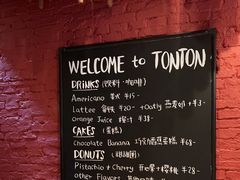 WELCOME to TONTON
DRINKS (饮料·咖啡)
Americano 美式 ¥15-
Lattee 拿铁 ¥20- +Oatly 燕麦奶 +¥3-
Orange Juice 橙汁 ¥38-
CAKES (蛋糕)
Chocolate Banana 巧克力香蕉蛋糕 ¥68-
DONUTS (甜甜圈)
Pistachio + Cherry 开心果+樱桃 ¥28-
other Flavors